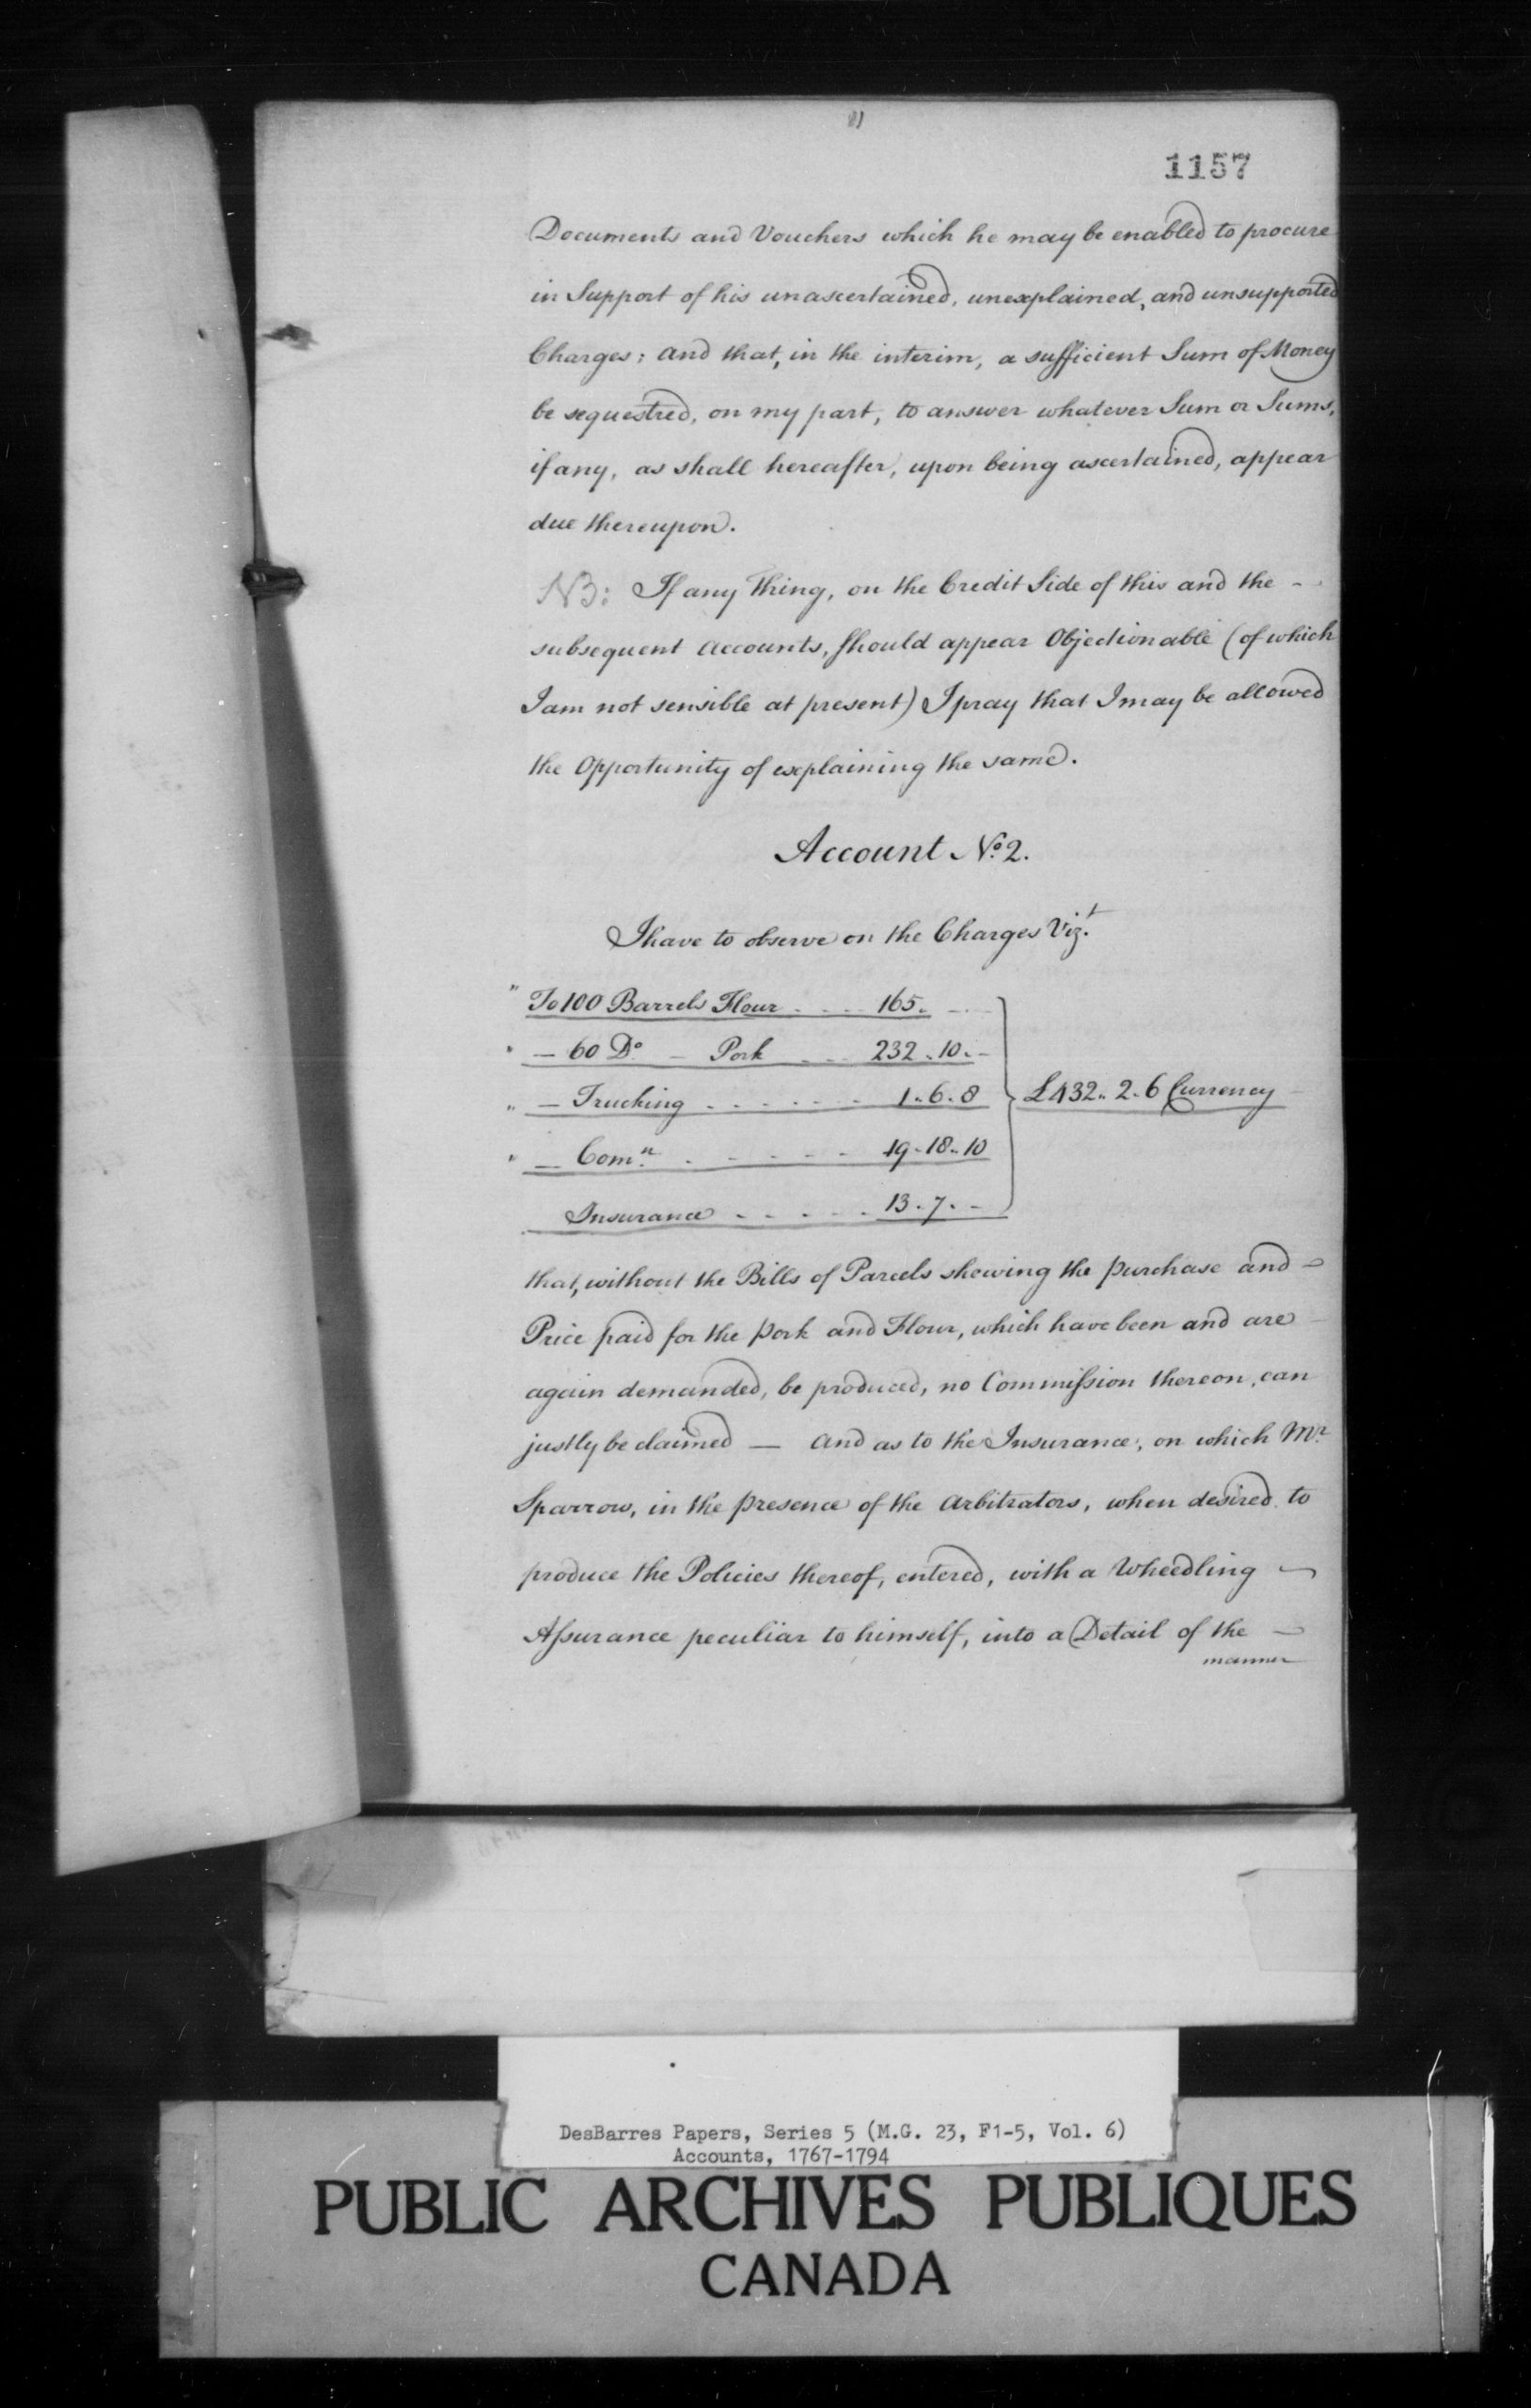 1157
Documents and Vouchers which he may be enabled to procure
in Support of his unascertained, unexplained, and unsupported
Charges; and that, in the interim, a sufficient Sum of Money
be sequestred, on my part, to answer whatever Sum or Sums,
if any, as shall hereafter, upon being ascertained, appear
due thereupon.
NB: If any Thing, on the Credit Side of this and the -
subsequent Accounts, should appear Objectionable (of which
I am not sensible at present) I pray that I may be allowed
the Opportunity of explaining the same.
Account No. 2.
I have to observe on the Charges Vizt.
" To 100 Barrels Flour . . . . 165. - . -
" - 60 Do. - Pork . . . 232 . 10 . -
" - Trucking . . . . . . . 1 . 6 . 8
£432 . 2 . 6 Currency
" - Comn. . . . . . . 19 . 18 . 10
Insurance . . . . . . 13 . 7 . -
that, without the Bills of Parcels shewing the purchase and -
Price paid for the Pork and Flour, which have been and are
again demanded, be produced, no Commission thereon, can
justly be claimed — And as to the Insurance, on which Mr.
Sparrow, in the presence of the Arbitrators, when desired to
produce the Policies thereof, entered, with a Wheedling -
Assurance peculiar to himself, into a Detail of the -
manner
DesBarres Papers, Series 5 (M.G. 23, F1-5, Vol. 6)
Accounts, 1767-1794
PUBLIC ARCHIVES PUBLIQUES
CANADA